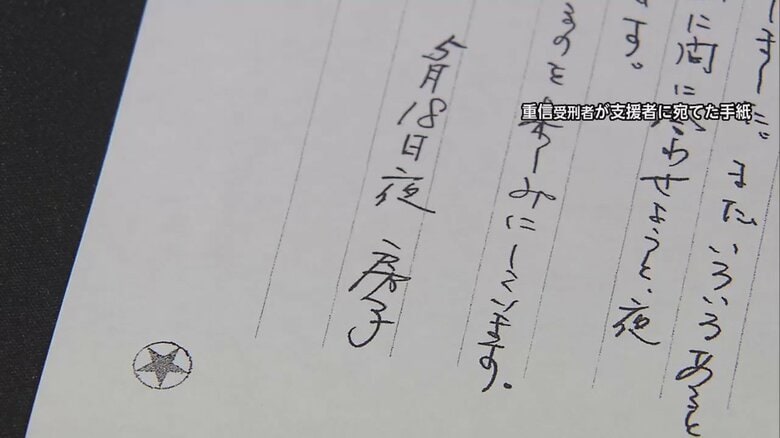 重信受刑者が支援者に宛てた手紙
まだいろいろあると
に間に合わせようと、夜
す。
るのを楽しみにしています。
5月18日夜 房子